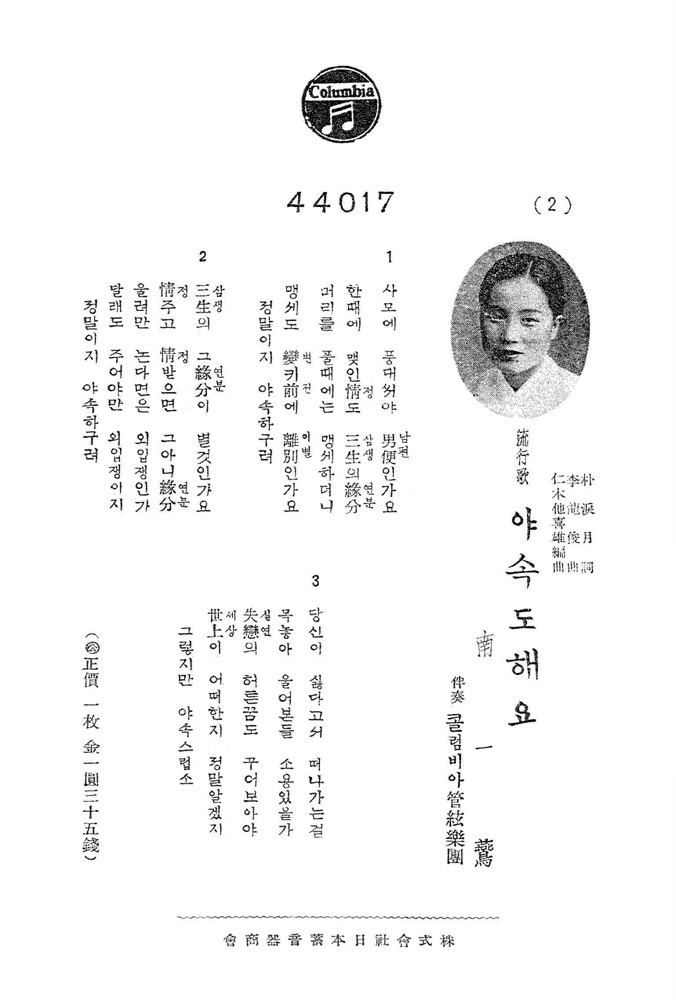 Columbia
44017
(2)
流行歌
야속도해요
朴淚月詞
李龍俊曲
仁木他喜雄編曲
南一鶯
伴奏 콜럼비아管絃樂團
1
남편
사모에 풍대서야 男便인가요
정 삼생 연분
한때에 맺인情도 三生의緣分
머리를 풀때에는 맹세하더니
변 전 이별
맹세도 變키前에 離別인가요
정말이지 야속하구려
2
삼생 연분
三生의 그緣分이 별것인가요
정 정 연분
情주고 情받으면 그아니緣分
울려만 논다면은 외입쟁인가
달래도 주어야만 외입쟁이지
정말이지 야속하구려
3
당신이 싫다고서 떠나가는걸
목놓아 울어본들 소용있을가
실연
失戀의 허튼꿈도 꾸어보아야
세상
世上이 어떠한지 정말알겠지
그렇지만 야속스럽소
(㊎正價 一枚 金一圓三十五錢)
株式會社日本蓄音器商會